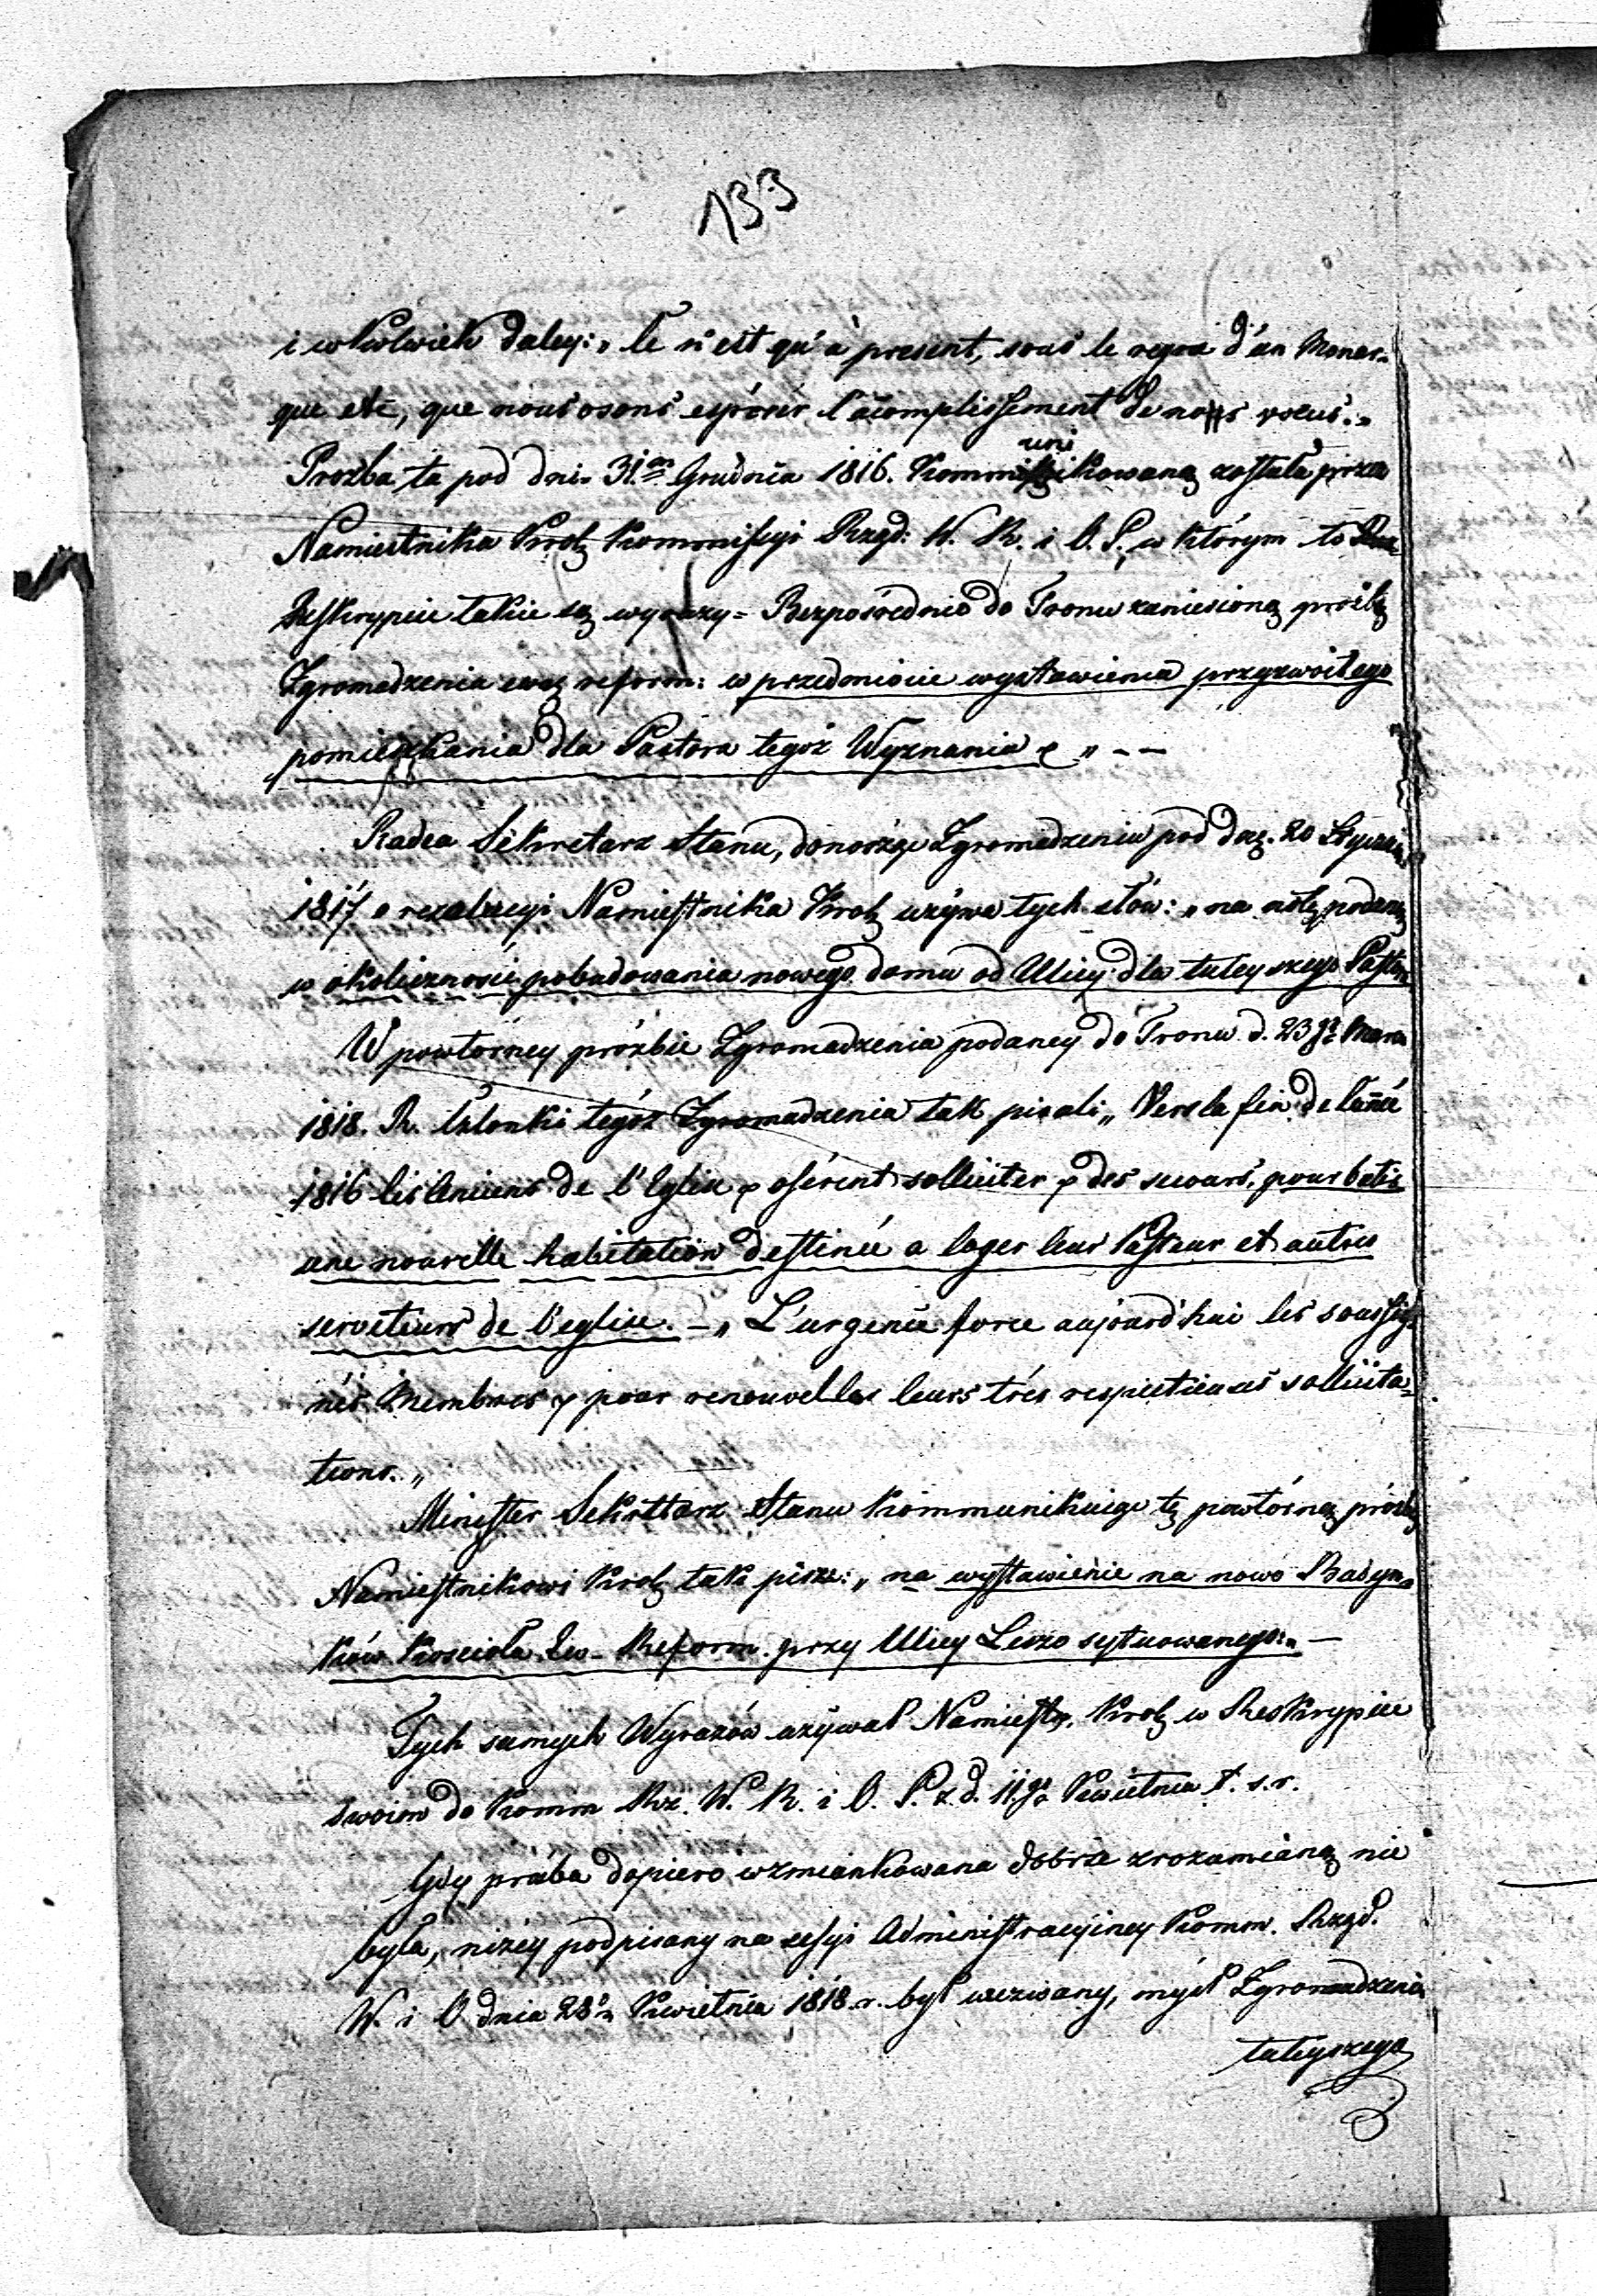 133
i cokolwiek daley: „Ce n'est qu'à present, sous le regne d'un Monar-
que etc, que nous osons espérer l'acomplissement de nos voeus."
Prozba ta pod dni. 31m Grudnia 1816. Kommunikowaną została przez
Namiestnika Krolę Kommissyi Rząd: W. R. i O. P. w którym to
Reskrypcie takie są wyrazy = Bezpośrednio do Tronu zaniesioną prośbę
Zgromadzenia ewą reform: w przedmiocie wystawienia przyzwoitego
pomieszkania dla Pastora tegoż Wyznania " – –
Radca Sekretarz Stanu, donosząc Zgromadzeniu pod dną. 20 Stycznia
1817 o rezolucyi Namiestnika Krolę używa tych słów: „na notę podaną
w okoliczności pobudowania nowego domu od Ulicy dla tuteyszego Pastora
W powtórney prózbie Zgromadzenia podaney do Tronu d. 23go Marca
1818. R. Członki tegóż Zgromadzenia tak pisali „Vers la fin de l'année
1816 les Anciens de l'Eglise oserent solliciter des secours, pour batir
une nouvelle habitation destinée a loger leur Pasteur et autres
serviteurs de l'eglise. – „L'urgence force aujourd'hui les soussig-
nés Membres pour renouveller leurs trés respectueuses sollicita-
tions."
Minister Sekrettarz Stanu kommunikuiąc tę powtórną próźbę
Namiestnikowi Krolę tak pisze: „na wystawienie na nowo Budyn-
ków Kościoła Ew. Reform. przy Ulicy Leszo sytuowanego:" –
Tych samych Wyrazów używał Namiestn. Krolę w Reskrypcie
swoim do Komm Rz. W. R. i O. P. z d. 11.go Kwietnia t. s. r.
Gdy prózba dopiero wzmiankowana dobrze zrozumianą nie
była, niżey podpisany na sessyi Administracyiney Komm. Rząd.
W. i O. dnia 28o Kwietnia 1818 r. był wezwany, myśl Zgromadzenia
tuteyszego